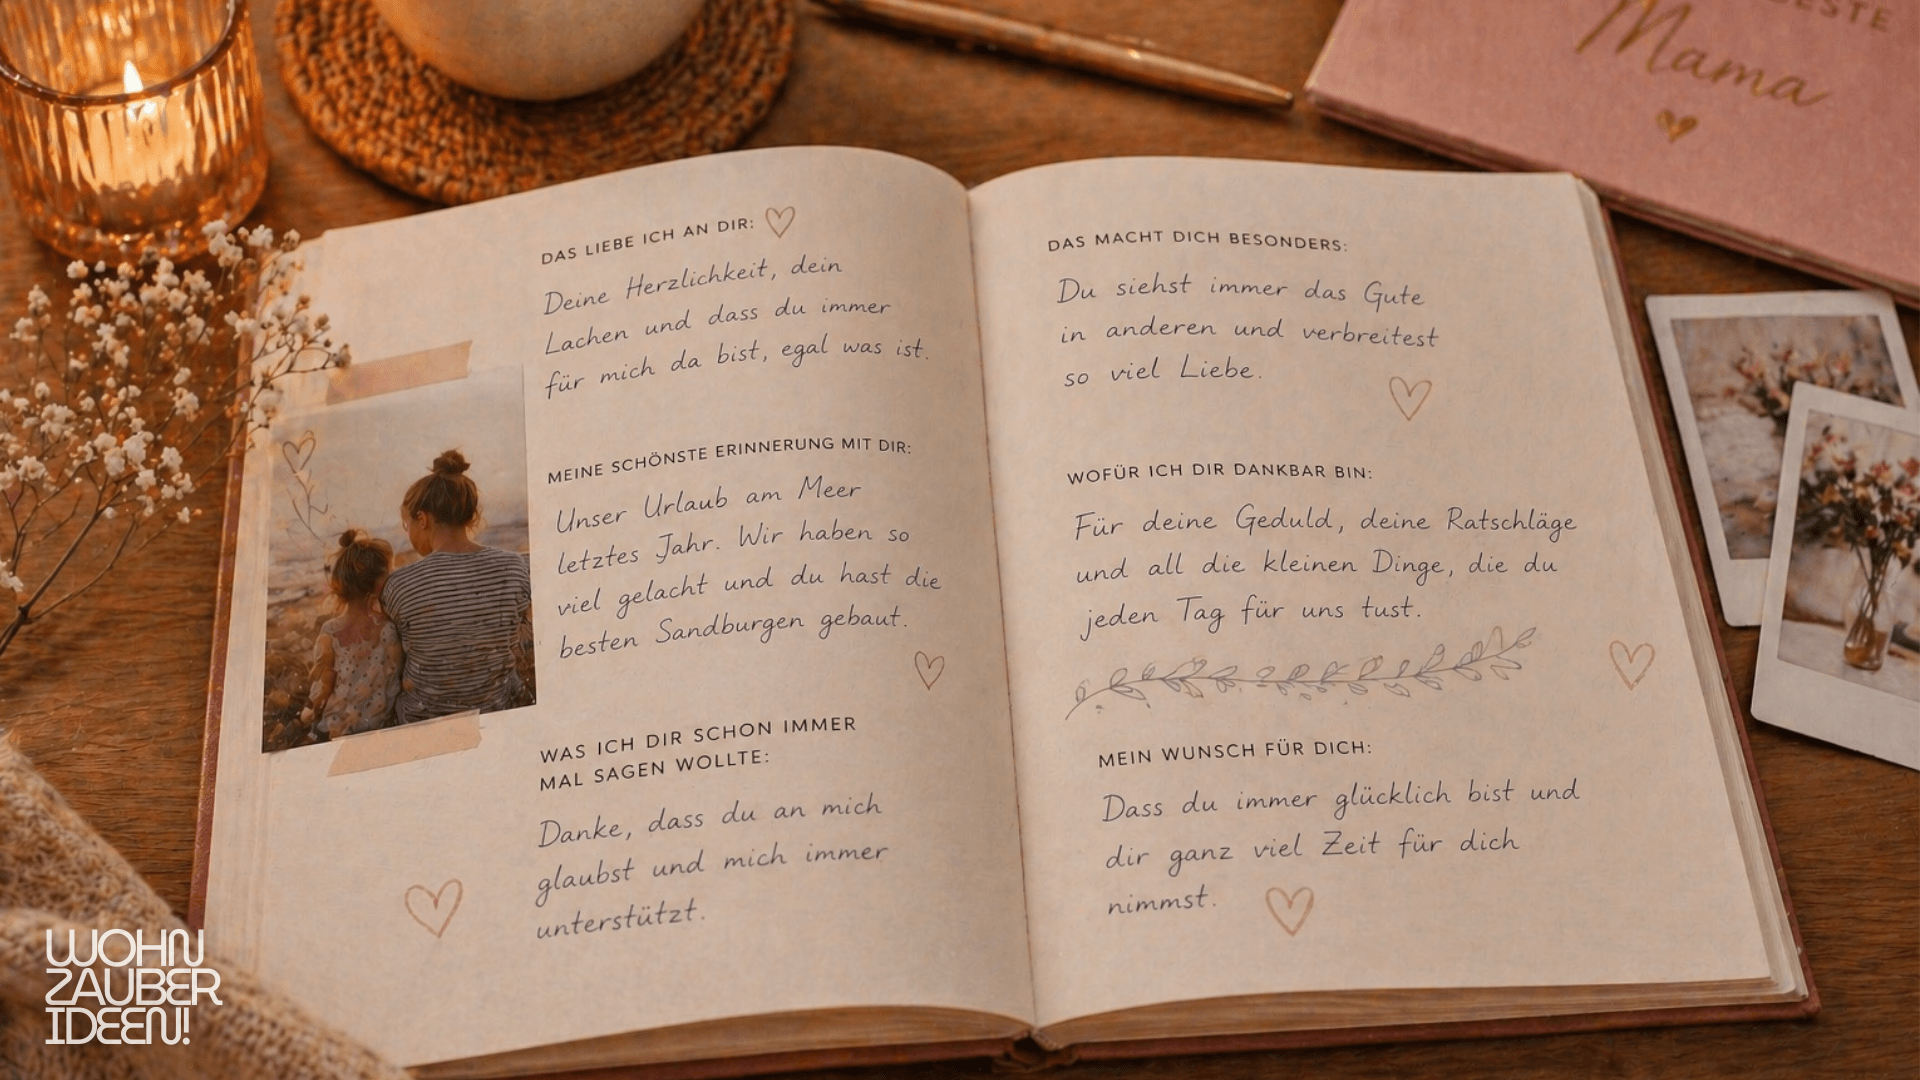 DAS LIEBE ICH AN DIR:
Deine Herzlichkeit, dein
Lachen und dass du immer
für mich da bist, egal was ist.
MEINE SCHÖNSTE ERINNERUNG MIT DIR:
Unser Urlaub am Meer
letztes Jahr. Wir haben so
viel gelacht und du hast die
besten Sandburgen gebaut.
WAS ICH DIR SCHON IMMER
MAL SAGEN WOLLTE:
Danke, dass du an mich
glaubst und mich immer
unterstützt.
DAS MACHT DICH BESONDERS:
Du siehst immer das Gute
in anderen und verbreitest
so viel Liebe.
WOFÜR ICH DIR DANKBAR BIN:
Für deine Geduld, deine Ratschläge
und all die kleinen Dinge, die du
jeden Tag für uns tust.
MEIN WUNSCH FÜR DICH:
Dass du immer glücklich bist und
dir ganz viel Zeit für dich
nimmst.
BESTE
Mama
WOHN
ZAUBER
IDEEN!